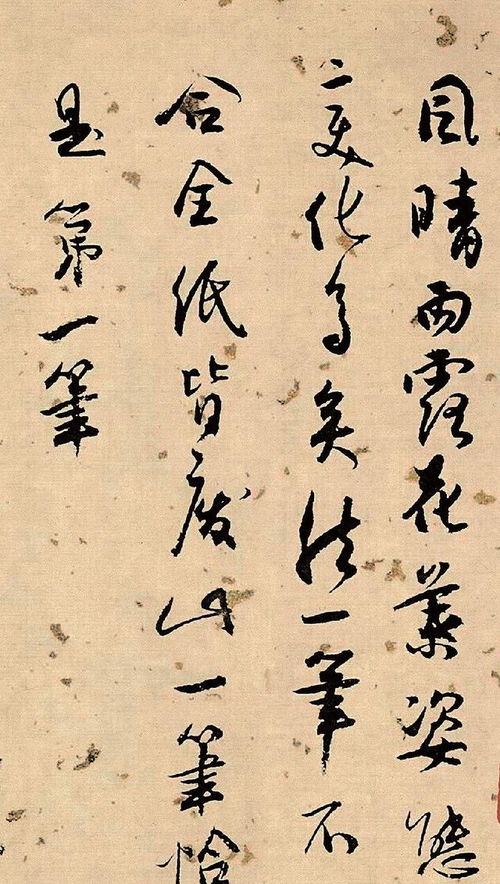 風晴雨露花葉姿態
變化多矣然一筆不
合全紙皆廢此一筆恰
是第一筆